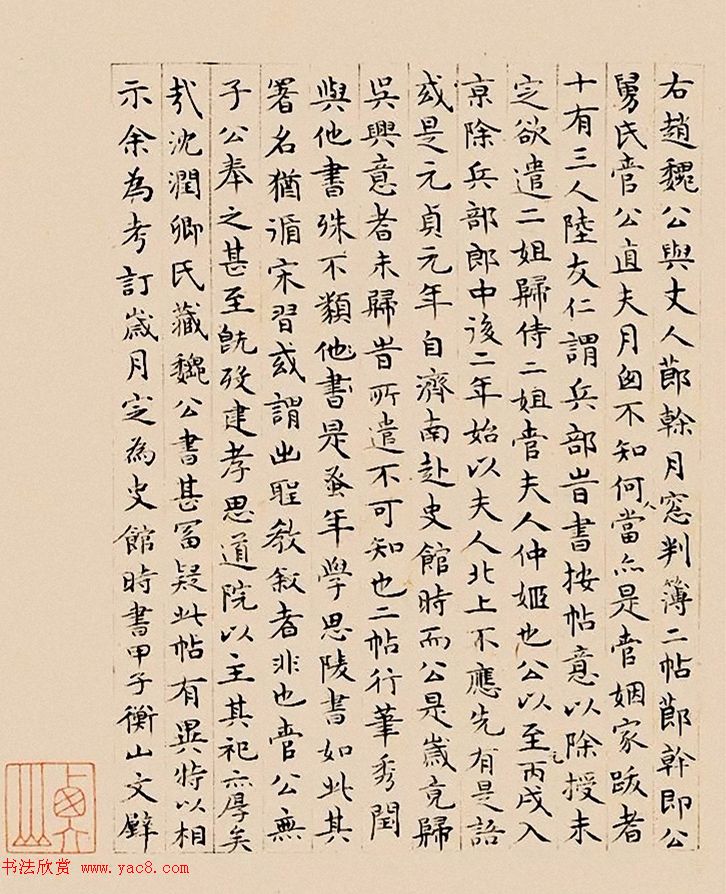 右趙魏公與丈人莭榦月窓判簿二帖莭榦即公
舅氏管公直夫月囪不知何人當亦是管姻家跋者
十有三人陸友仁謂兵部時書按帖意以除授未
定欲遣二姐歸侍二姐管夫人仲姬也公以至元丙戌入
京除兵部郎中後二年始以夫人北上不應先有是語
或是元貞元年自濟南赴史館時而公是歲竟歸
吳興意者未歸時所遣不可知也二帖行筆秀閏
與他書殊不類他書是蚤年學思陵書如此其
署名猶循宋習或謂出聖教敘者非也管公無
子公奉之甚至既歿建孝思道院以主其祀亦厚矣
哉沈潤卿氏藏魏公書甚富疑此帖有異特以相
示余為考訂歲月定為史館時書甲子衡山文壁
书法欣赏 www.yac8.com